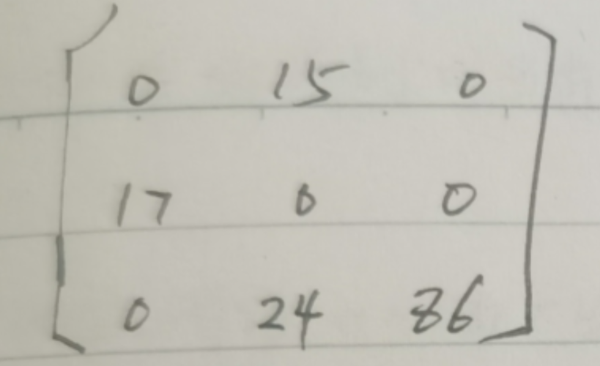 0 15 0
17 0 0
0 24 86